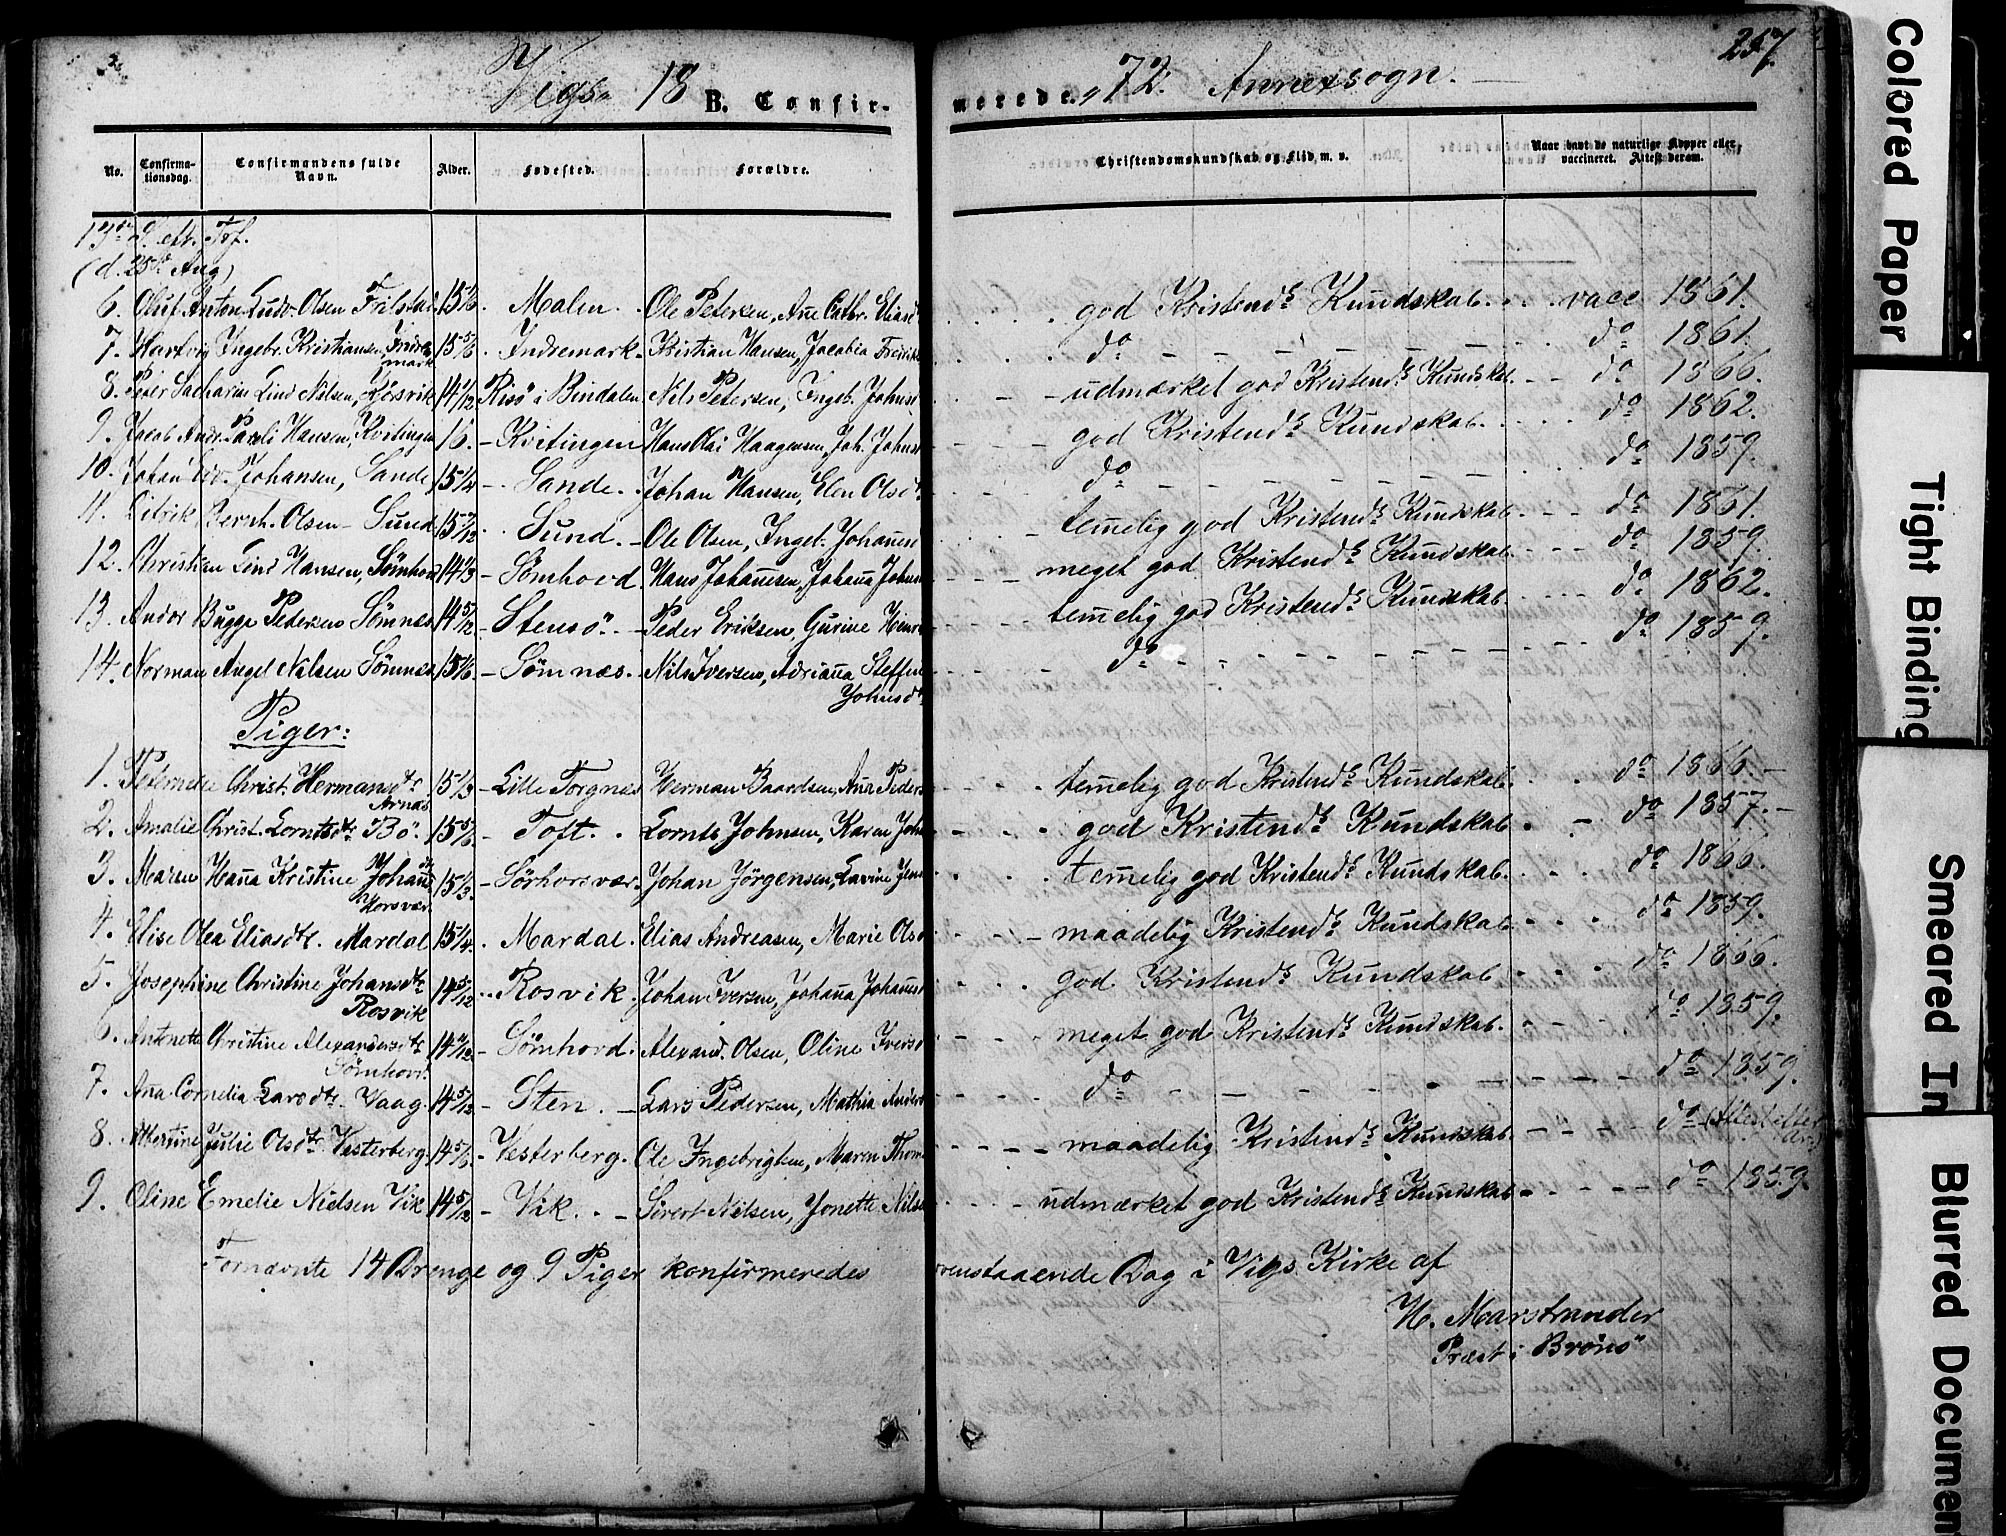 257.
Vigs 18 B. Confirmerede. 72. Annexsogn.
No. Confirmationsdag. Confirmandens fulde Navn. Alder. Fødested. Forældre. Christendomskundskab og Flid m. v. Naar havt de naturlige Kopper eller vaccineret. Attest derom.
13de S. eft. Tref.
(d. 25de Aug)
6. Oluf Anton Ludv. Olsen 15 1/6 Malen. Ole Petersen, Ane Cathr. Elias god Kristends Kundskab. vacc 1861.
7. Hartvig Ingebr. Kristiansen, Indremark 15 5/6 Indremark Kristian Hansen, Jacobia Fredriks do do 1861.
8. Peter Sacharias Lind Nilsen, 14 1/12 Risö i Bindalen Nils Petersen, Ingeb. Johns udmærket god Kristends Kundskab. do 1866.
9. Jacob Andr. Hansen, Kvitingen 16. Kvitingen Hans Olai Haagensen, Joh. Johns god Kristends Kundskab. do 1862.
10. Johan Edv. Johansen, Sande 15 1/4 Sande. Johan Hansen, Elen Olsdt. do do 1859.
11. Ditrik Bernh. Olsen Sund. 15 Sund. Ole Olsen, Ingeb. Johanes temelig god Kristends Kundskab. do 1861.
12. Christian Lind Hansen, Sömhovd 14 1/3 Sömhovd Hans Johanesen, Johana Johns meget god Kristends Kundskab. do 1859.
13. Andor Bugge Pedersen Sömnes 14 5/12 Stensö Peder Eriksen, Gurine Henr temelig god Kristends Kundskab. do 1862.
14. Norman Angel Nilsen Sömnes 15 1/6 Sömnæs. Nils Iversen, Adriana Steffen Johnsdt do do 1859.
Piger:
1. Peternelle Christ. Hermansdtr Arnas 15 1/3 Lille Torgnes Herman Baardsen, Ana Peders temelig god Kristends Kundskab. do 1866.
2. Amalie Christ. Lorntsdtr Bö. 15 5/6 Toft. Lornts Johnsen, Karen Joh god Kristends Kundskab do 1857.
3. Maren Hana Kristine Johansdtr Horsvær. 15 1/3. Sörhorsvær. Johan Jörgensen, Lavine Jens temelig god Kristends Kundskab. do 1866.
4. Elise Olea Eliasdtr. Mardal 15 1/4. Mardal. Elias Andreasen, Marie Ols maadelig Kristends Kundskab. do 1859.
5. Josephine Christine Johansdtr Rosvik 14 5/12 Rosvik. Johan Iversen, Johana Johanes god Kristends Kundskab do 1866.
6. Antonette Christine Alexandersdtr Sömhovd. 14 Sömhovd. Alexand. Olsen, Oline Ivers meget god Kristends Kundskab. do 1859.
7. Ana Cornelia Larsdtr Vaag. 14 5/12 Sten. Lars Pedersen, Mathia Anders do do 1859.
8. Albertine Julie Olsdtr Vesterberg. 14 5/6 Vesterberg. Ole Ingebrigtsen, Maren Thom maadelig Kristends Kundskab. do (Attest efter
9. Oline Emelie Nielsen Vik 14 5/12 Vik. Sivert Nilsen, Jonette Nils udmærket god Kristends Kundskab do 1859
Fornævnte 14 Drenge og 9 Piger konfirmeredes ovenstaaende Dag i Vigs Kirke af
H. Marstrander
Præst i Brönö
Colored Paper
Tight Binding
Smeared In
Blurred Documen